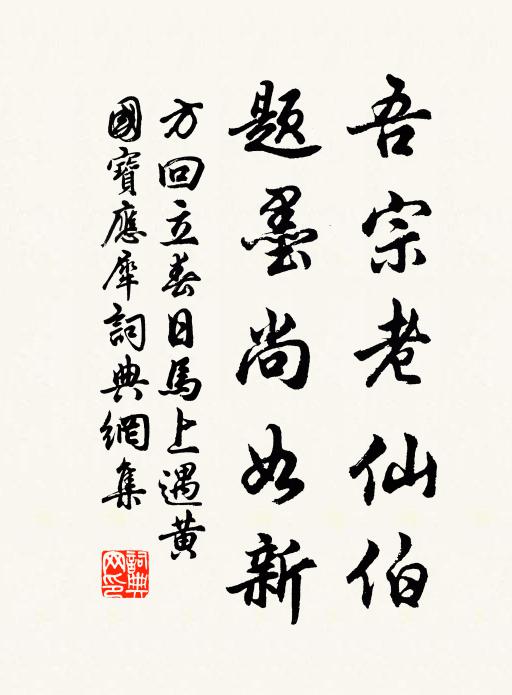 吾宗老仙伯
題墨尚如新
方回立春日馬上遇黃
國寶應犀詞典網集
詞典網印